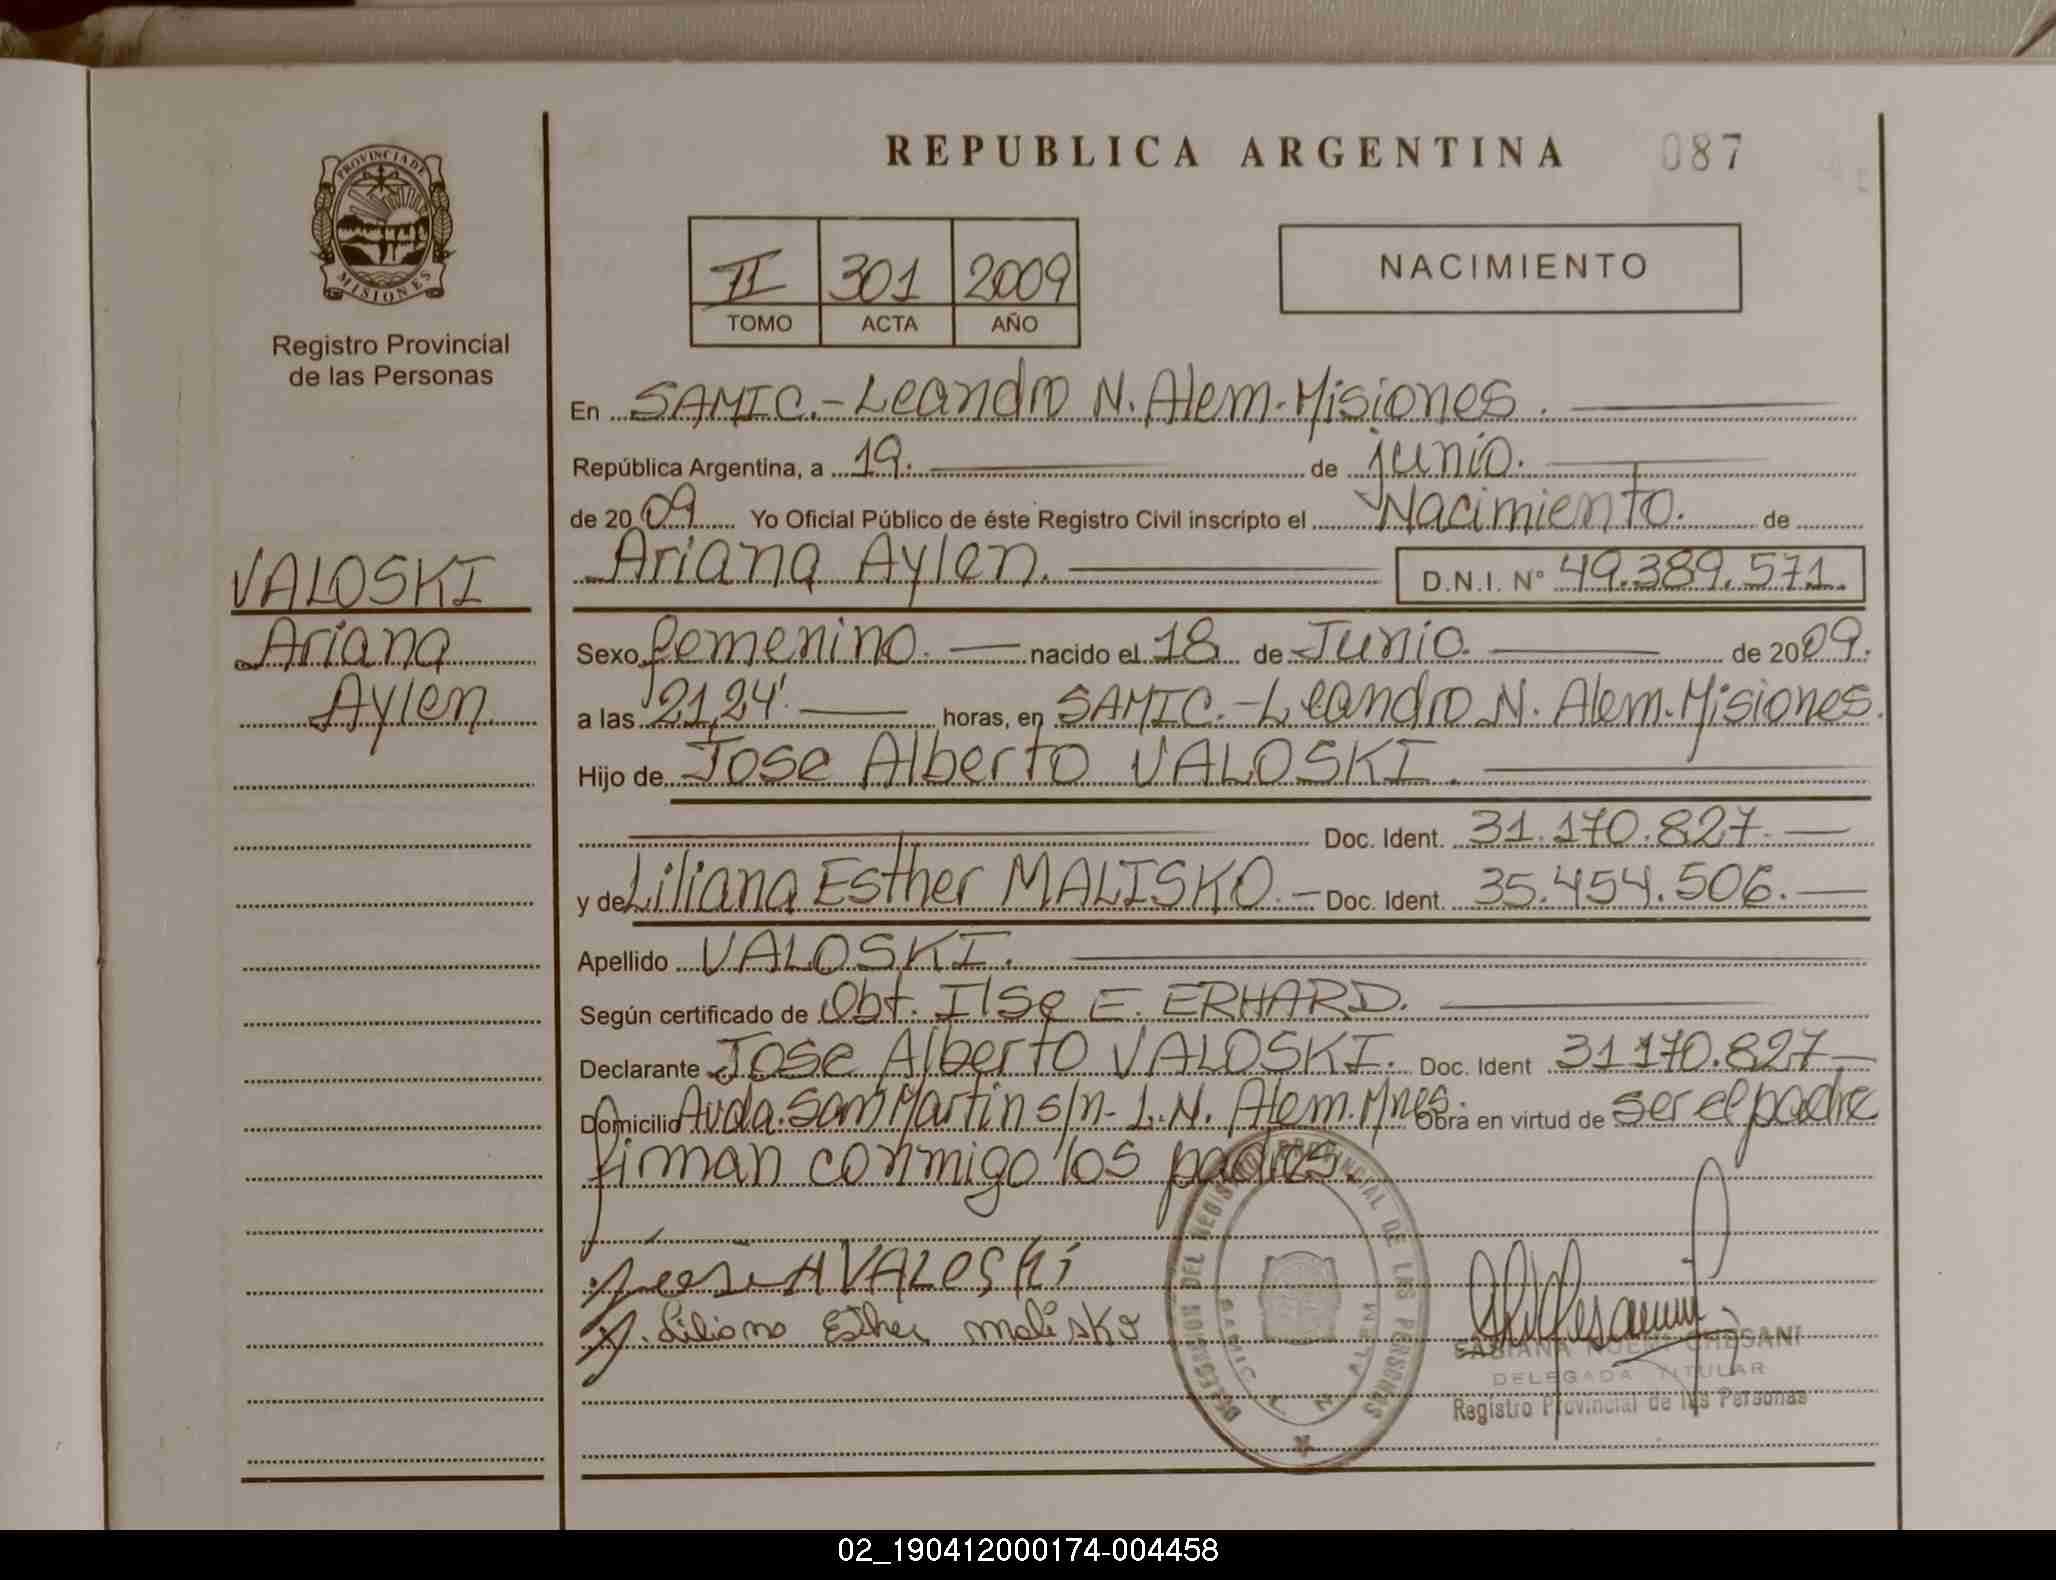 REPUBLICA ARGENTINA 087
PROVINCIA DE
MISIONES
Registro Provincial
de las Personas
II 301 2009
TOMO ACTA AÑO
NACIMIENTO
En SAMIC.-Leandro N. Alem-Misiones.
República Argentina, a 19. de junio.
de 2009 Yo Oficial Público de éste Registro Civil inscripto el Nacimiento. de
Ariana Aylen. D.N.I. N° 49.389.571.
VALOSKI
Ariana
Aylen
Sexo femenino. nacido el 18 de Junio. de 2009.
a las 21,24' horas, en SAMIC.-Leandro N. Alem.Misiones.
Hijo de Jose Alberto VALOSKI.
Doc. Ident. 31.170.827.
y de Liliana Esther MALISKO.- Doc. Ident. 35.454.506.
Apellido VALOSKI.
Según certificado de Obt. Ilse E. ERHARD.
Declarante Jose Alberto VALOSKI. Doc. Ident 31170.827
Domicilio Avda. San Martin s/n- L.N. Alem.Mnes. Obra en virtud de ser el padre
firman conmigo los padres.
A VALOSKi
Liliana Esther malisko
DEL REGISTRO PROVINCIAL DE LAS PERSONAS
SAMIC L. N. ALEM
FABIANA NOEMI CHESANI
DELEGADA TITULAR
Registro Provincial de las Personas
02_190412000174-004458